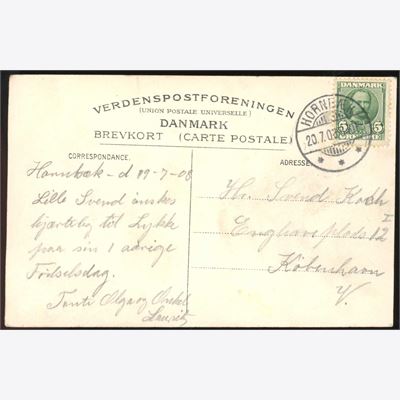 VERDENSPOSTFORENINGEN
(UNION POSTALE UNIVERSELLE)
DANMARK
BREVKORT (CARTE POSTALE)
DANMARK
5 5
HORNBÆK
20.7.08
CORRESPONDANCE.
Hornbæk - d 19-7-08
Lille Svend ønskes
hjærtelig til Lykke
paa sin 1 aarige
Fødselsdag.
Tante Olga og Onkel
Lauritz
ADRESSE
Hr. Svend Koch
Enghaveplads 12 I
København
V.